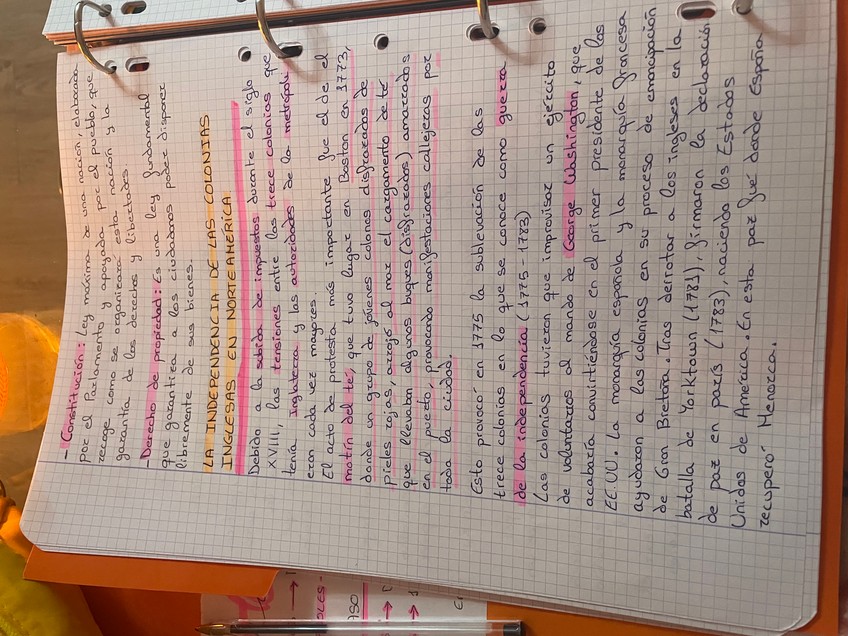 - Constitución: Ley máxima de una nación, elaborada
por el Parlamento y apoyada por el pueblo, que
recoge como se organizará esta nación y la
garantía de los derechos y libertades
- Derecho de propiedad: Es una ley fundamental
que garantiza a los ciudadanos poder disponer
libremente de sus bienes.
LA INDEPENDENCIA DE LAS COLONIAS
INGLESAS EN NORTEAMÉRICA
Debido a la subida de impuestos durante el siglo
XVIII, las tensiones entre las trece colonias que
tenía Inglaterra y las autoridades de la metrópoli
eran cada vez mayores.
El acto de protesta más importante fue el de el
motín del té, que tuvo lugar en Boston en 1773,
donde un grupo de jóvenes colonos disfrazados de
pieles rojas, arrojó al mar el cargamento de té
que llevaban algunos buques (disfrazados) amarrados
en el puerto, provocando manifestaciones callejeras por
toda la ciudad.
Esto provocó en 1775 la sublevación de las
trece colonias en lo que se conoce como guerra
de la independencia (1775-1783)
Las colonias tuvieron que improvisar un ejército
de voluntarios al mando de George Washington, que
acabaría convirtiéndose en el primer presidente de los
EE.UU. La monarquía española y la monarquía francesa
ayudaron a las colonias en su proceso de emancipación
de Gran Bretaña. Tras derrotar a los ingleses en la
batalla de Yorktown (1781), firmaron la declaración
de paz en parís (1783), naciendo los Estados
Unidos de América. En esta paz fué donde España
recuperó Menorca.